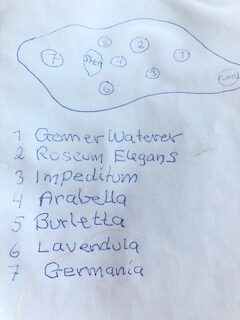 5 2
7 Sten 4 1
3
6
1 Gomer Waterer
2 Roseum Elegans
3 Impeditum
4 Arabella
5 Burletta
6 Lavendula
7 Germania